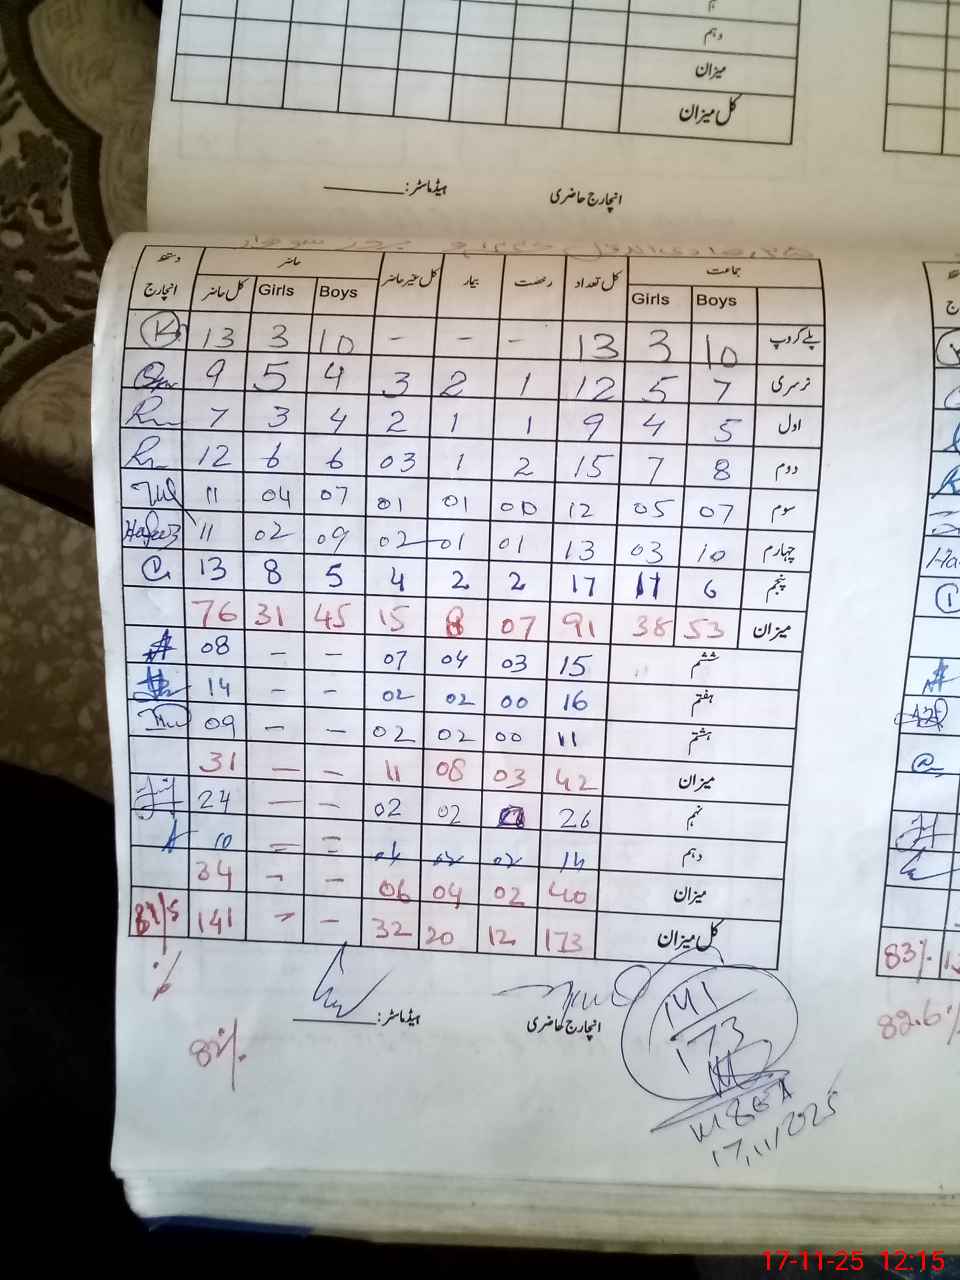 دہم
میزان
کل میزان
انچارج حاضری ہیڈماسٹر:
جماعت کل تعداد رخصت بیمار کل غیر حاضر حاضر دستخط انچارج
Boys Girls Boys Girls کل حاضر
پلے گروپ 10 3 13 - - - 10 3 13
نرسری 7 5 12 1 2 3 4 5 9
اول 5 4 9 1 1 2 4 3 7
دوم 8 7 15 2 1 03 6 6 12
سوم 07 05 12 00 01 01 07 04 11
چہارم 10 03 13 01 01 02 09 02 11 Hafeez
پنجم 6 11 17 2 2 4 5 8 13
میزان 53 38 91 07 8 15 45 31 76
ششم 15 03 04 07 - - 08
ہفتم 16 00 02 02 - - 14
ہشتم 11 00 02 02 - - 09
میزان 42 03 08 11 - - 31
نہم 26 02 02 - - 24
دہم 14 02 02 04 = = 10
میزان 40 02 04 06 - - 34
کل میزان 173 12 20 32 - - 141
انچارج حاضری ہیڈماسٹر:
141
173
17,11,2025
82%
83%
82.6%
17-11-25 12:15